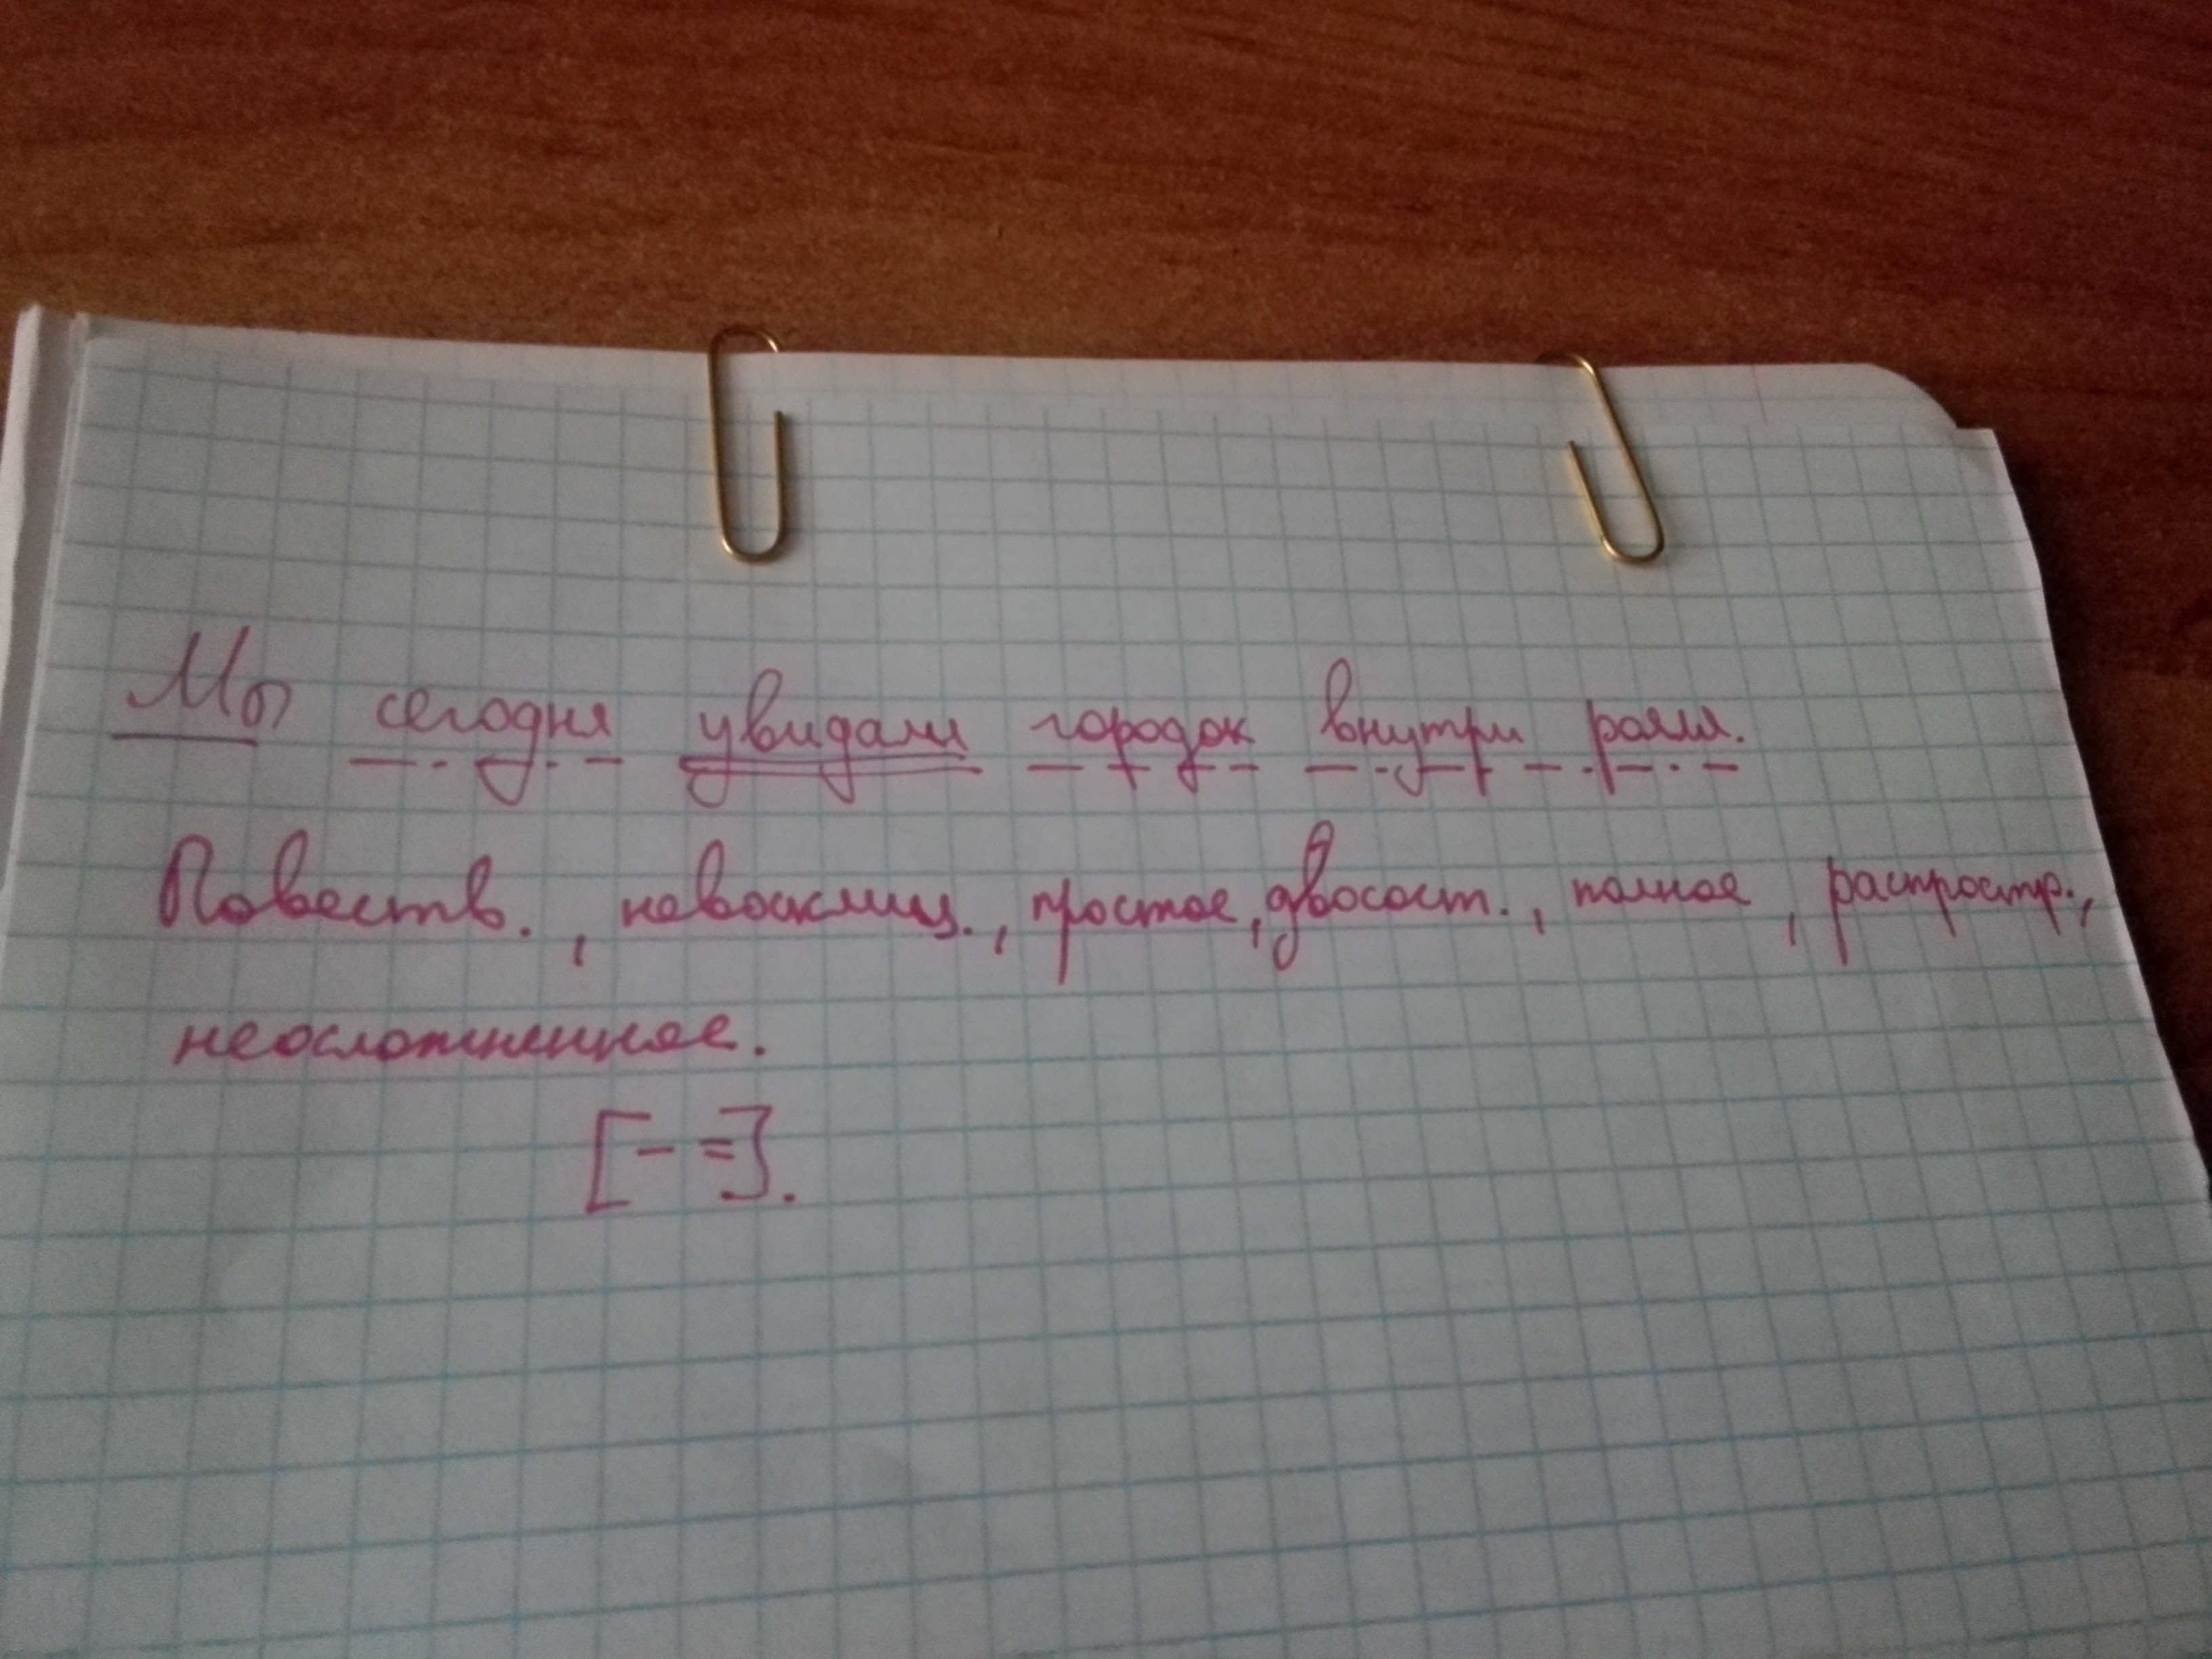 Мы сегодня увидали городок внутри рояля.
Повеств., невосклиц., простое, двосост., полное, распростр.,
неосложненное.
[- =].